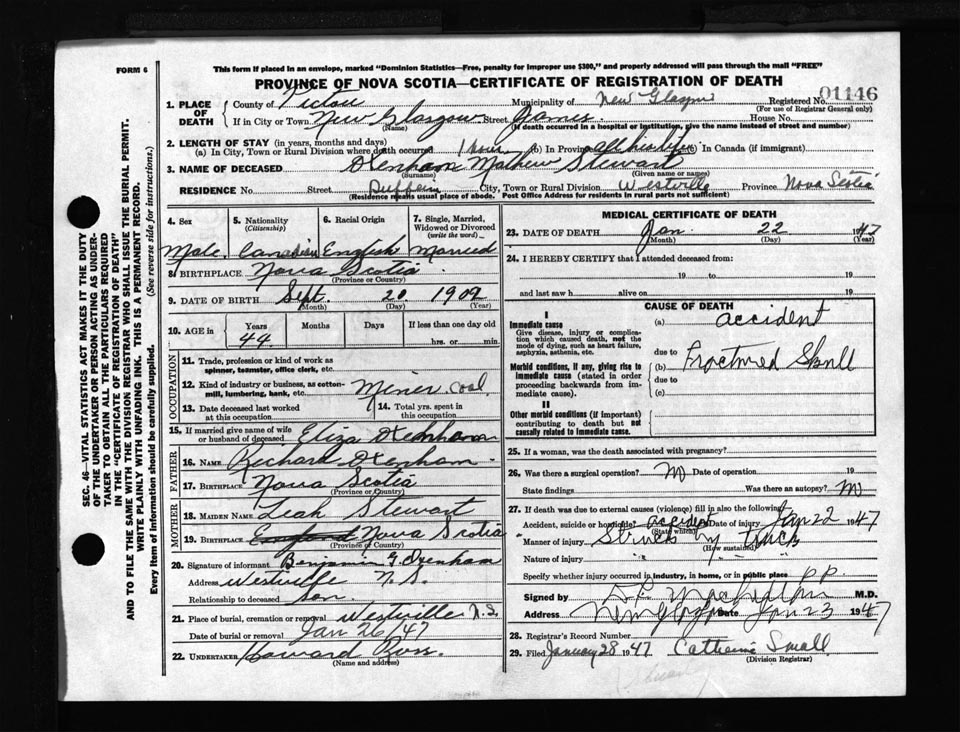 FORM 6
This form if placed in an envelope, marked "Dominion Statistics—Free, penalty for improper use $300," and properly addressed will pass through the mail "FREE"
PROVINCE OF NOVA SCOTIA—CERTIFICATE OF REGISTRATION OF DEATH
01146
1. PLACE OF DEATH County of Pictou Municipality of New Glasgow Registered No.
(For use of Registrar General only)
If in City or Town New Glasgow Street James House No.
(Name) (If death occurred in a hospital or institution, give the name instead of street and number)
2. LENGTH OF STAY (in years, months and days)
(a) In City, Town or Rural Division where death occurred 1 hour (b) In Province all his life (c) In Canada (if immigrant)
3. NAME OF DECEASED Oxenham Mathew Stewart
(Surname) (Given name or names)
RESIDENCE No. Street Dufferin City, Town or Rural Division Westville Province Nova Scotia
(Residence means usual place of abode. Post Office Address for residents in rural parts not sufficient)
4. Sex 5. Nationality (Citizenship) 6. Racial Origin 7. Single, Married, Widowed or Divorced (write the word)
Male Canadian English Married
8. BIRTHPLACE Nova Scotia
(Province or Country)
9. DATE OF BIRTH Sept. 20 1902
(Month) (Day) (Year)
10. AGE in Years Months Days If less than one day old
44 hrs. or min.
OCCUPATION
11. Trade, profession or kind of work as spinner, teamster, office clerk, etc.
12. Kind of industry or business, as cotton-mill, lumbering, bank, etc. Miner. Coal.
13. Date deceased last worked at this occupation
14. Total yrs. spent in this occupation
15. If married give name of wife or husband of deceased Eliza Oxenham
FATHER
16. NAME Richard Oxenham
17. BIRTHPLACE Nova Scotia
(Province or Country)
MOTHER
18. MAIDEN NAME Leah Stewart
19. BIRTHPLACE England Nova Scotia
(Province or Country)
20. Signature of informant Benjamin F. Oxenham
Address Westville N.S.
Relationship to deceased Son.
21. Place of burial, cremation or removal Westville N.S.
Date of burial or removal Jan 26/47
22. UNDERTAKER Howard Ross.
(Name and address)
MEDICAL CERTIFICATE OF DEATH
23. DATE OF DEATH Jan. 22 1947
(Month) (Day) (Year)
24. I HEREBY CERTIFY that I attended deceased from
19 to 19
and last saw h alive on 19
CAUSE OF DEATH
I
Immediate cause
Give disease, injury or complication which caused death, not the mode of dying, such as heart failure, asphyxia, asthenia, etc.
(a) accident
due to
Morbid conditions, if any, giving rise to immediate cause (stated in order proceeding backwards from immediate cause).
(b) Fractured Skull
due to
(c)
II
Other morbid conditions (if important) contributing to death but not causally related to immediate cause.
25. If a woman, was the death associated with pregnancy?
26. Was there a surgical operation? No Date of operation 19
State findings Was there an autopsy? No
27. If death was due to external causes (violence) fill in also the following:
Accident, suicide or homicide? accident Date of injury Jan 22 1947
(State which)
Manner of injury Struck by truck
(How sustained)
Nature of injury " " "
Specify whether injury occurred in industry, in home, or in public place p.p.
Signed by M.D.
Address New Glasgow Date Jan 23 1947
28. Registrar's Record Number
29. Filed January 28 1947 Catherine Small
(Division Registrar)
SEC. 46—VITAL STATISTICS ACT MAKES IT THE DUTY
OF THE UNDERTAKER OR PERSON ACTING AS UNDERTAKER TO OBTAIN ALL THE PARTICULARS REQUIRED
IN THE "CERTIFICATE OF REGISTRATION OF DEATH"
AND TO FILE THE SAME WITH THE DIVISION REGISTRAR WHO SHALL ISSUE THE BURIAL PERMIT.
WRITE PLAINLY WITH UNFADING INK. THIS IS A PERMANENT RECORD.
Every item of Information should be carefully supplied. (See reverse side for instructions.)